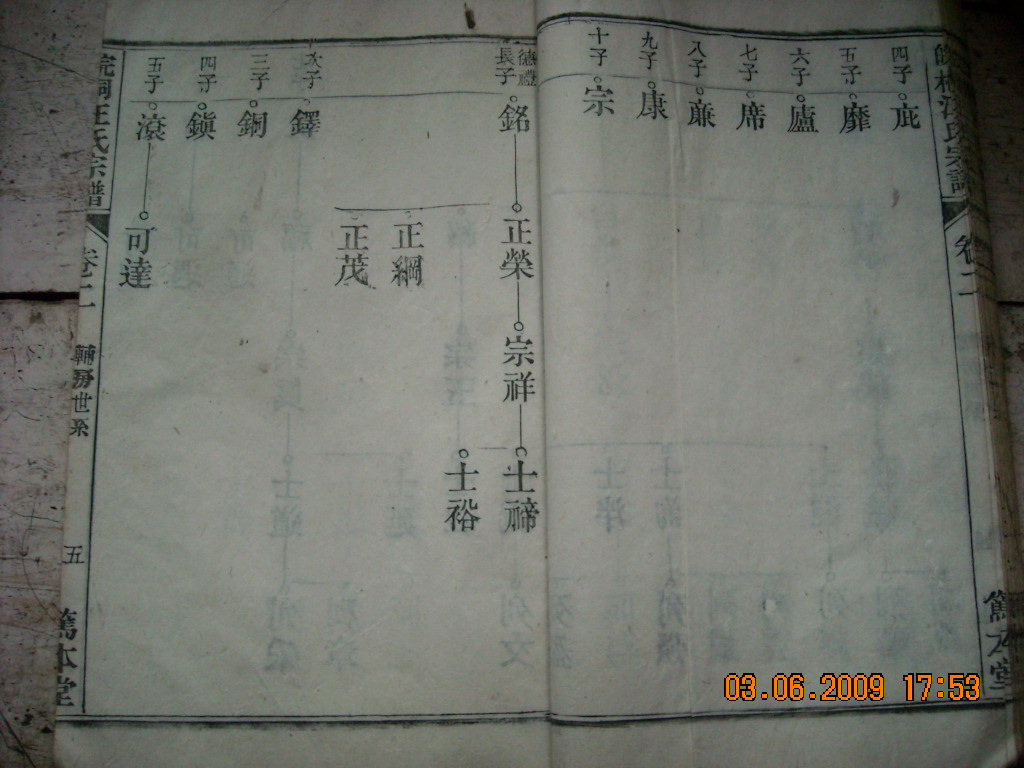 四子 庇
五子 靡
六子 廬
七子 席
八子 廉
九子 康
十子 宗
德禮長子 銘 正榮 宗祥 士禘
士裕
正綱
正茂
次子 鐸
三子 銅
四子 鎮
五子 滾 可達
皖桐汪氏宗譜 卷二 輔房世系 五 篤本堂
卷二
篤本堂
03.06.2009 17:53